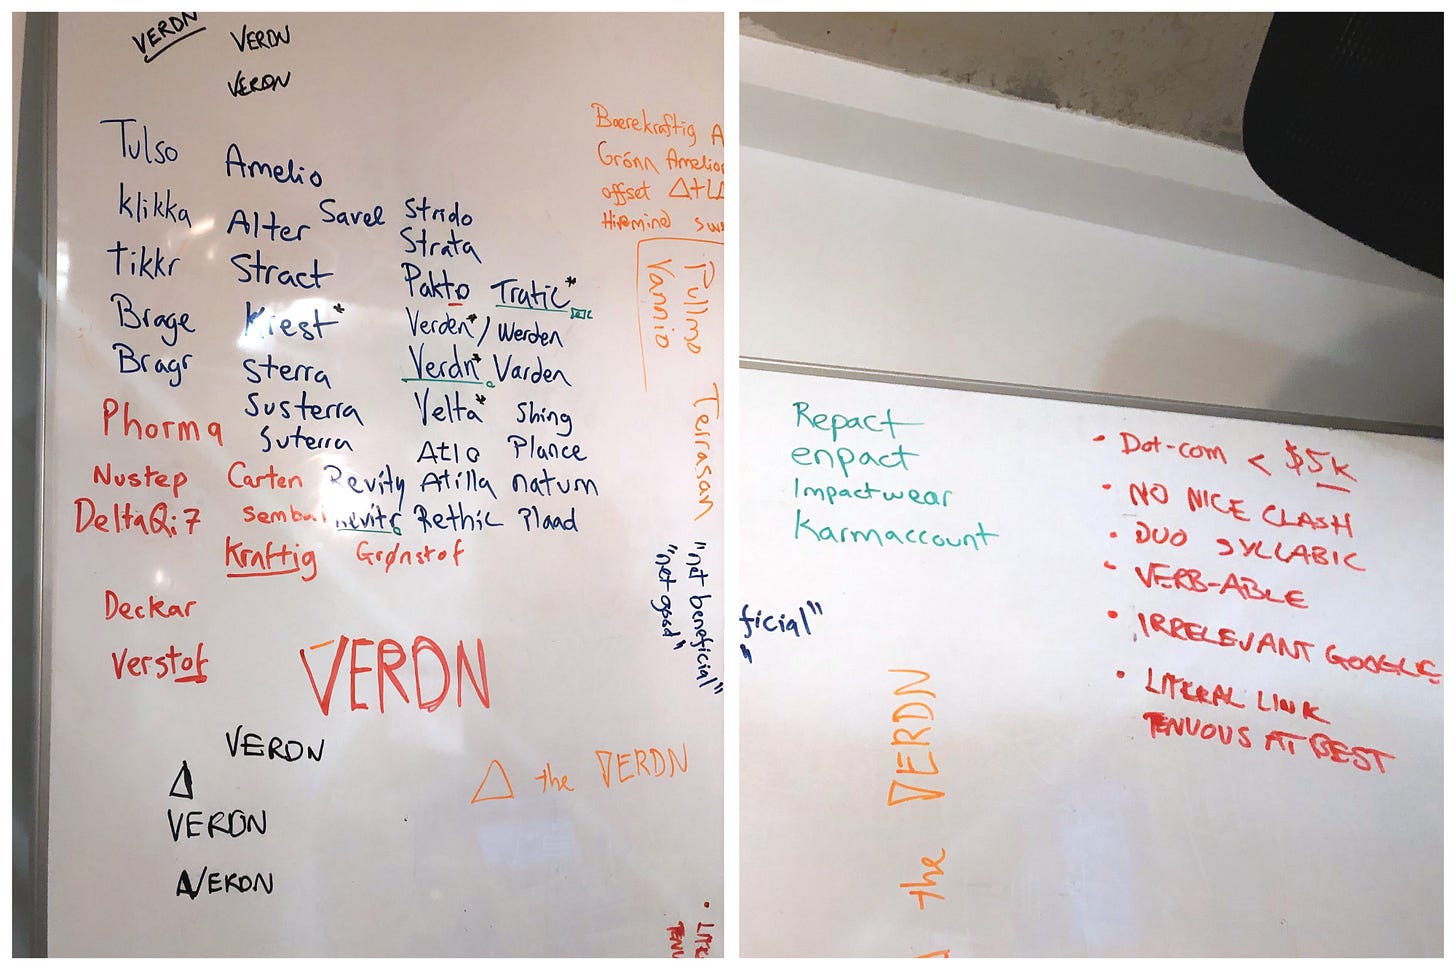 VERDN VERDN
VERDN
Tulso
klikka
tikkr
Brage
Bragr
Phorma
Nustep
DeltaQi7
Deckar
Verstof
Amelio
Alter
Stract
Kiest*
Sterra
Susterra
Suterra
Carten
Kraftig Grønstof
Savel Strido
Strata
Pakto Tratic*
Verden* / Werden
Verdn* Varden
Velta* Shing
Atlo Plance
Revity Atilla naturn
Rethic Plaad
VERDN
VERDN
Δ
VERDN
VERDN
Δ the VERDN
Bærekraftig A
Grónn Amelio
offset Δ+
Hivemind sus
Pullmo
Vannio
Terrasan
"net beneficial"
"net good"
Repact
enpact
Impactwear
Karmaccount
ficial"
"
the VERDN
• Dot-com < $5k
• NO NICE CLASH
• DUO SYLLABIC
• VERB-ABLE
• IRRELEVANT GOOGLE
• LITERAL LINK
TENUOUS AT BEST